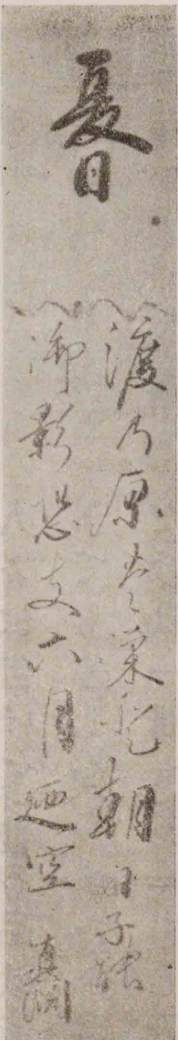 夏日
渡乃原豊栄登朝日子能
御影恐支六月迺空
真淵